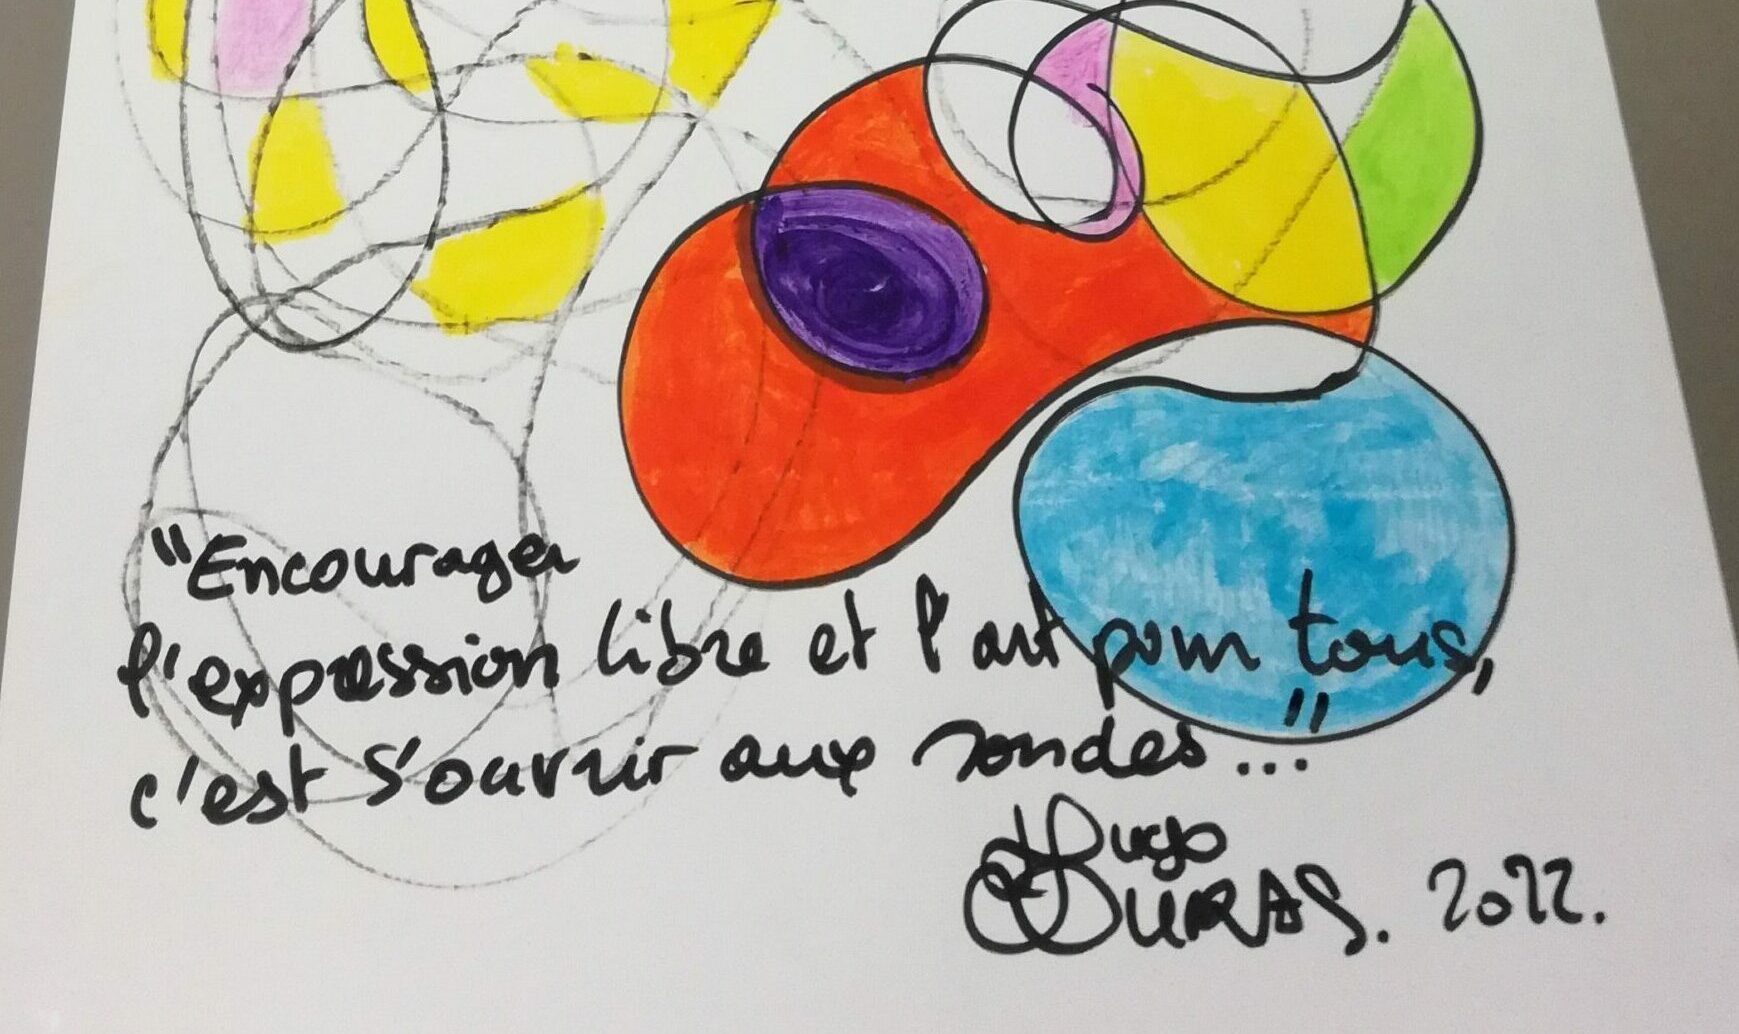 "Encourager
l'expression libre et l'art pour tous,
c'est s'ouvrir aux rondes..."
Hugo
DURAS. 2022.